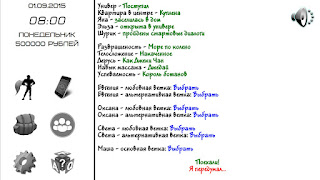 01.09.2015
08:00
ПОНЕДЕЛЬНИК
500000 РУБЛЕЙ
Универ - Поступил
Квартира в центре - Куплена
Яна - заселилась в дом
Эльза - открыта в универе
Шурик - пройдены стартовые диалоги
Развращённость - Море по колено
Телосложение - Накаченное
Дерусь - Как Джеки Чан
Навык массажа - Джедай
Успеваемость - Король ботанов
Евгения - любовная ветка: Выбрать
Евгения - альтернативная ветка: Выбрать
Оксана - любовная ветка: Выбрать
Оксана - альтернативная ветка: Выбрать
Света - любовная ветка: Выбрать
Света - альтернативная ветка: Выбрать
Маша - основная ветка: Выбрать
Поехали!
Я передумал...